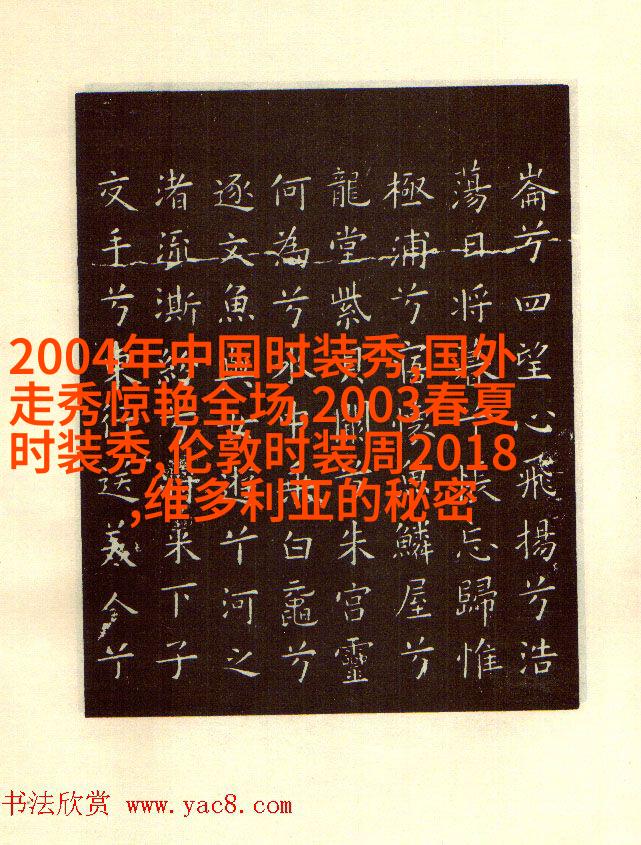 崙兮四望心飛揚兮浩
蕩日將暮兮悵忘歸惟
極浦兮寤懷魚鱗屋兮
龍堂紫貝闕兮朱宮靈
何為兮水中乘白黿兮
逐文魚與女遊兮河之
渚流澌紛兮將來下子
交手兮東行送美人兮
2004年中国时装秀,国外
走秀惊艳全场,2003春夏
时装秀,伦敦时装周2018
,维多利亚的秘密
书法欣赏 www.yac8.com